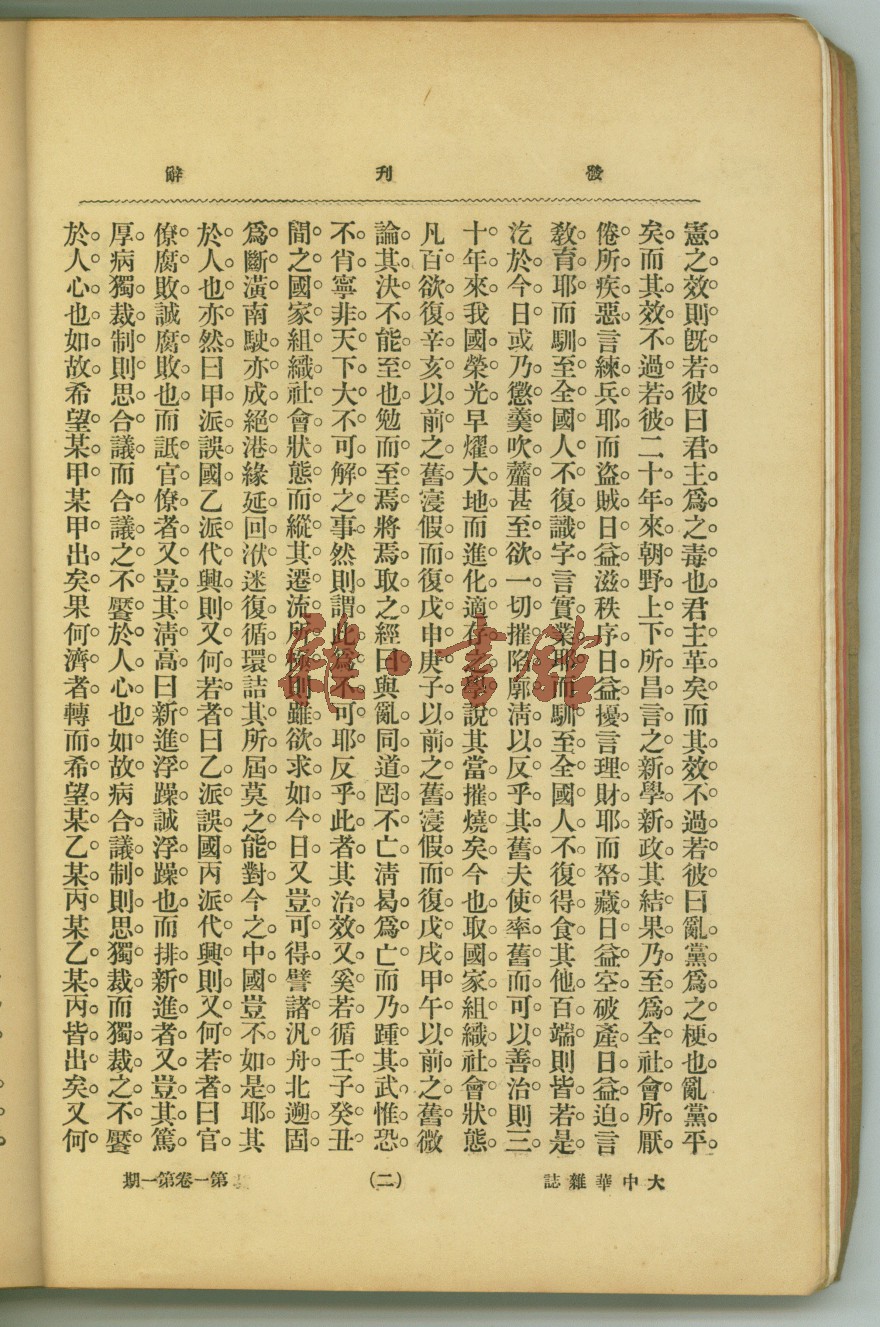 發刊辭
憲之效則既若彼曰君主爲之毒也君主革矣而其效不過若彼曰亂黨爲之梗也亂黨平
矣而其效不過若彼二十年來朝野上下所昌言之新學新政其結果乃至爲全社會所厭
倦所疾惡言練兵耶而盜賊日益滋秩序日益擾言理財耶而帑藏日益空破產日益迫言
敎育耶而馴至全國人不復識字言實業耶而馴至全國人不復得食其他百端則皆若是
汔於今日或乃懲羹吹虀甚至欲一切摧陷廓淸以反乎其舊夫使率舊而可以善治則三
十年來我國榮光早燿大地而進化適存之學說其當摧燒矣今也取國家組織社會狀態
凡百欲復辛亥以前之舊寖假而復戊申庚子以前之舊寖假而復戊戌甲午以前之舊微
論其決不能至也勉而至焉將焉取之經曰與亂同道罔不亡淸曷爲亡而乃踵其武惟恐
不肖寧非天下大不可解之事然則謂此爲不可耶反乎此者其治效又奚若循壬子癸丑
間之國家組織社會狀態而縱其遷流所極則雖欲求如今日又豈可得譬諸汎舟北遡固
爲斷潢南駛亦成絕港緣延回洑迷復循環詰其所屆莫之能對今之中國豈不如是耶其
於人也亦然曰甲派誤國乙派代興則又何若者曰乙派誤國丙派代興則又何若者曰官
僚腐敗誠腐敗也而詆官僚者又豈其淸高曰新進浮躁誠浮躁也而排新進者又豈其篤
厚病獨裁制則思合議而合議之不饜於人心也如故病合議制則思獨裁而獨裁之不饜
於人心也如故希望某甲某甲出矣果何濟者轉而希望某乙某丙某乙某丙皆出矣又何
大中華雜誌
(二)
第一卷第一期
雜·書館